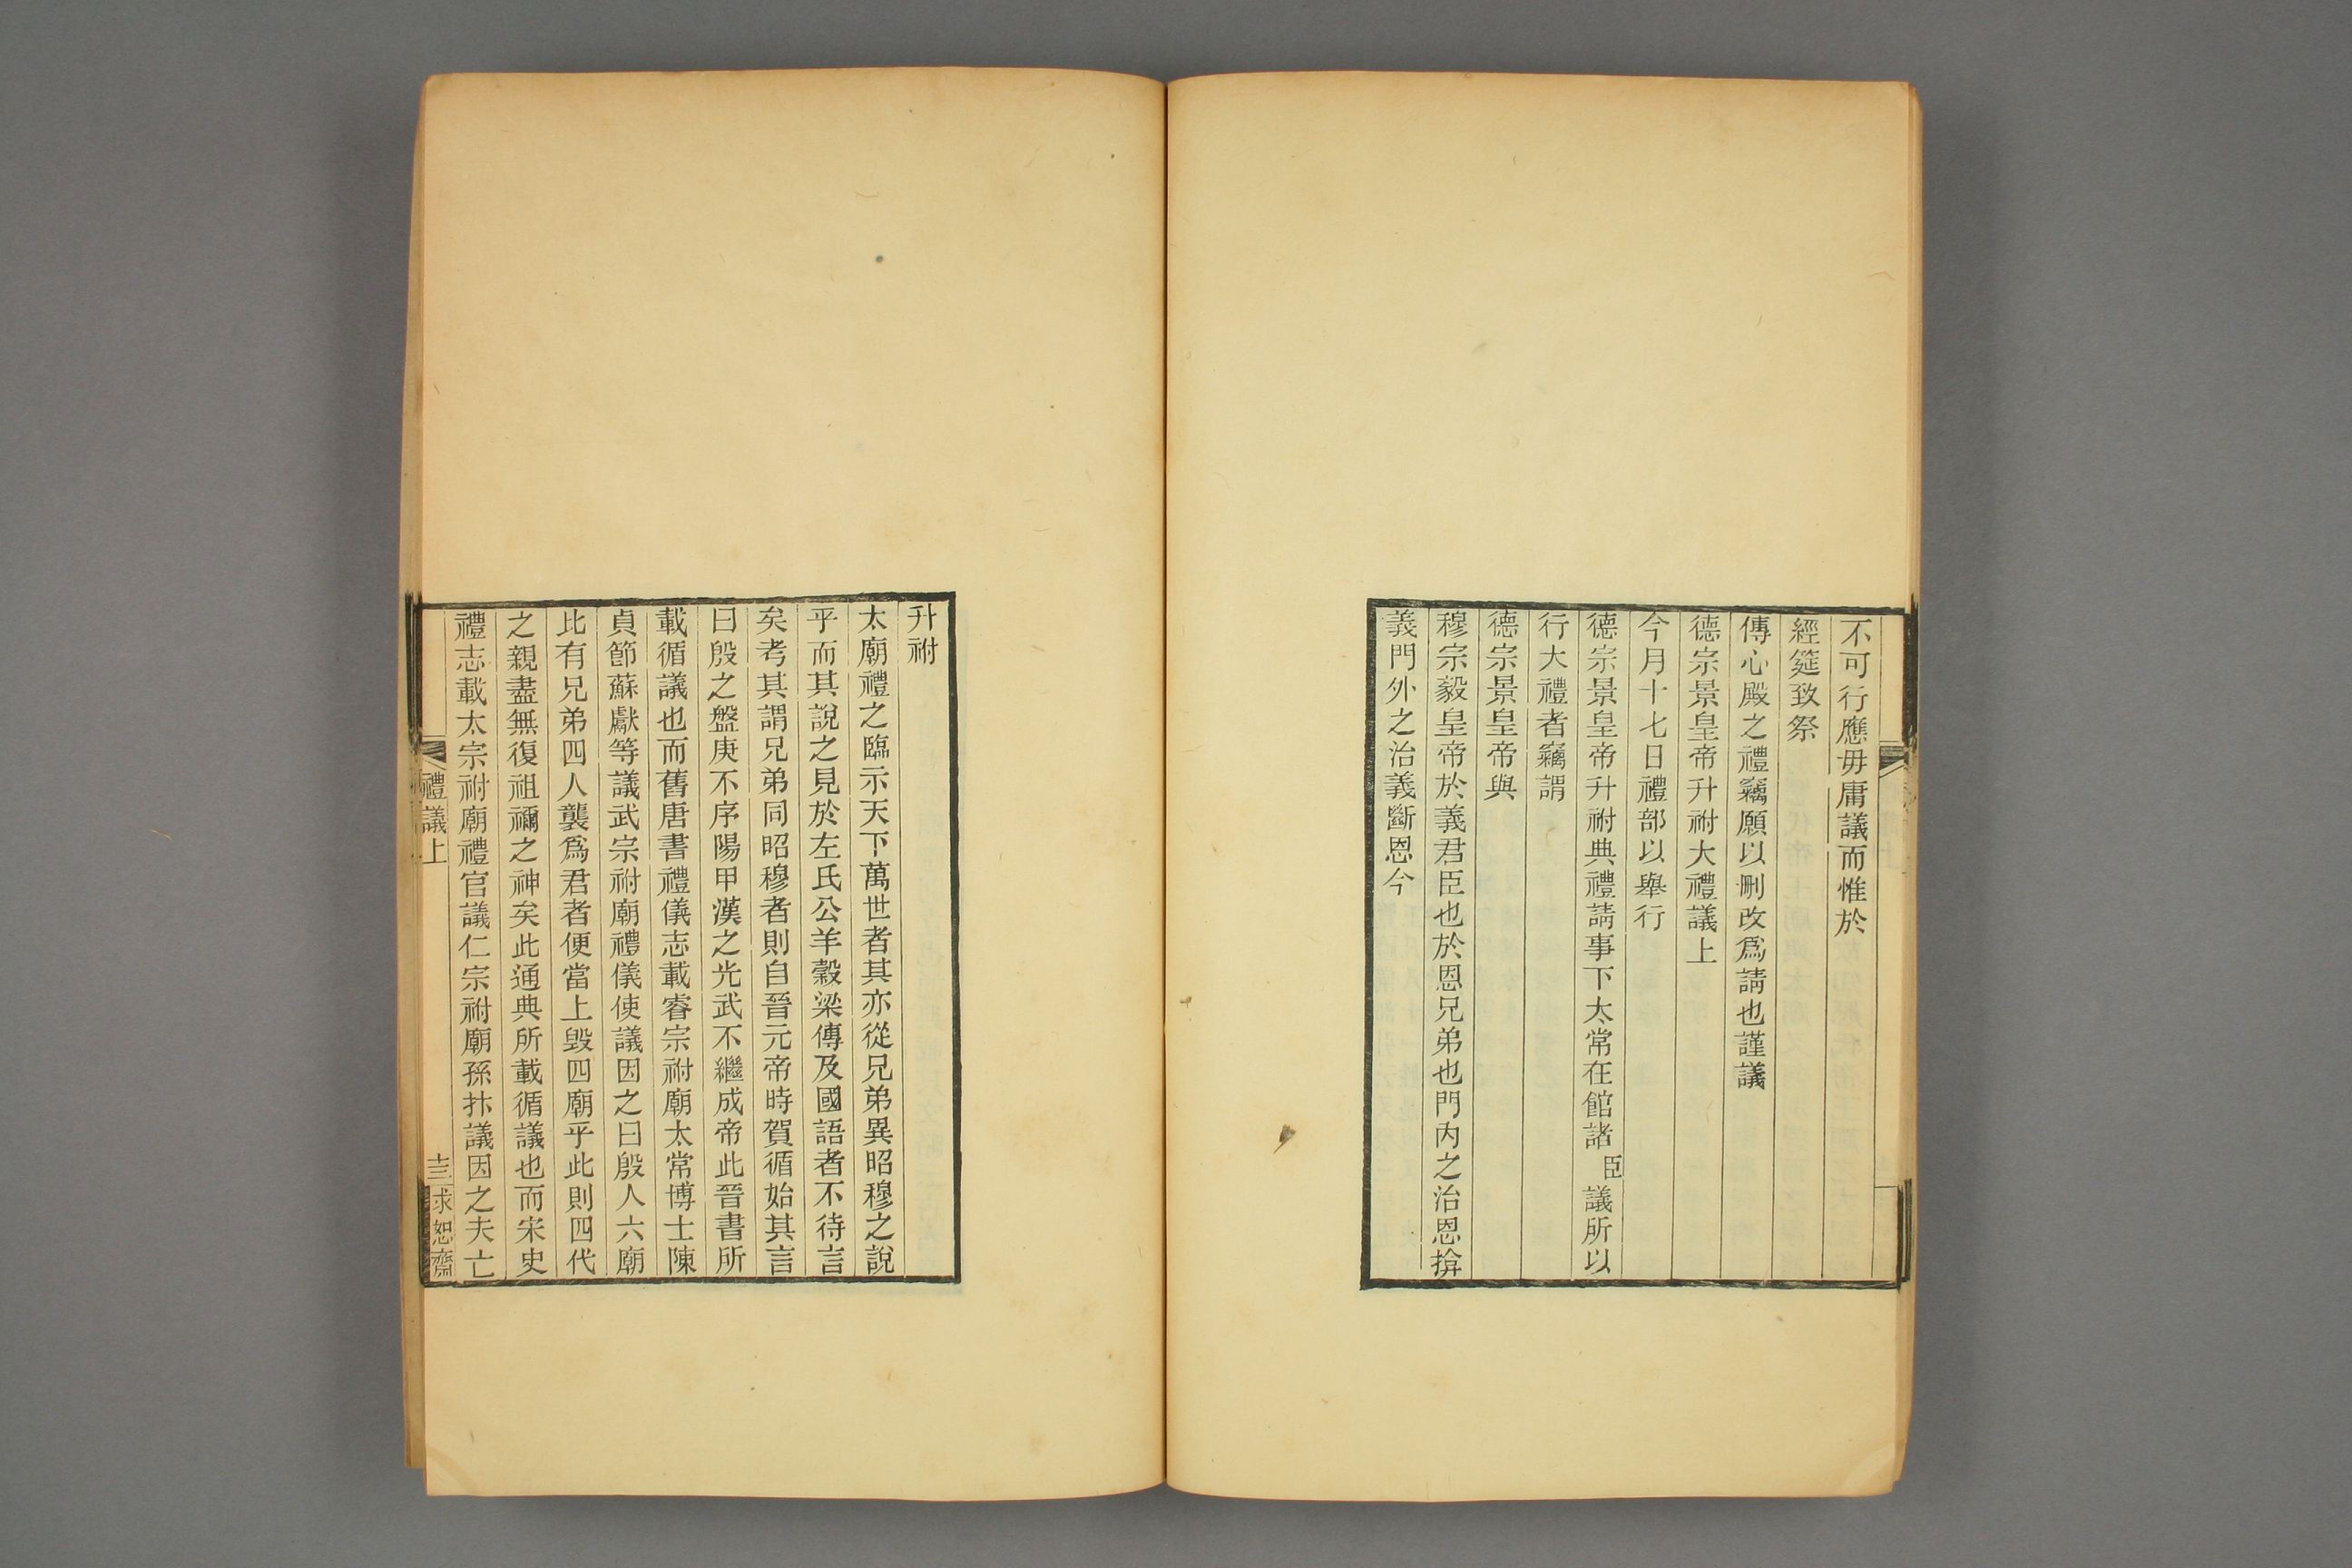 不可行應毋庸議而惟於
經筵致祭
傳心殿之禮竊願以刪改爲請也謹議
德宗景皇帝升祔大禮議上
今月十七日禮部以舉行
德宗景皇帝升祔典禮請事下太常在館諸臣議所以
行大禮者竊謂
德宗景皇帝與
穆宗毅皇帝於義君臣也於恩兄弟也門內之治恩揜
義門外之治義斷恩今
升祔
太廟禮之臨示天下萬世者其亦從兄弟異昭穆之說
乎而其說之見於左氏公羊穀梁傳及國語者不待言
矣考其謂兄弟同昭穆者則自晉元帝時賀循始其言
曰殷之盤庚不序陽甲漢之光武不繼成帝此晉書所
載循議也而舊唐書禮儀志載睿宗祔廟太常博士陳
貞節蘇獻等議武宗祔廟禮儀使議因之曰殷人六廟
比有兄弟四人襲爲君者便當上毀四廟乎此則四代
之親盡無復祖禰之神矣此通典所載循議也而宋史
禮志載太宗祔廟禮官議仁宗祔廟孫抃議因之夫亡
禮議上
十三
求恕齋